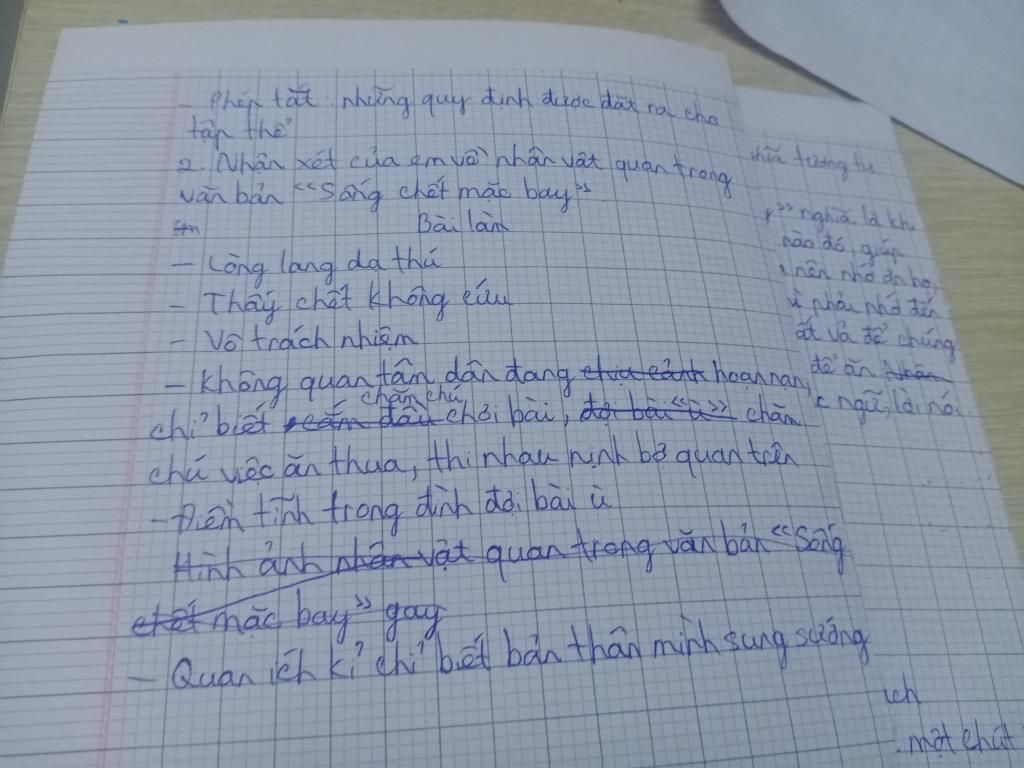 - Phép tắt những quy định được đặt ra cho
tập thể
2. Nhận xét của em về nhân vật quan trong
văn bản "Sống chết mặc bay"
Bài làm
- Lòng lang dạ thú
- Thấy chết không cứu
- Vô trách nhiệm
- Không quan tân dân đang chịu cảnh hoạn nạn,
chăm chú
chỉ biết chơi bài, đợi bài "ù" chăm
chú việc ăn thua, thi nhau nịnh bợ quan trên
- Điềm tĩnh trong đình đợi bài ù
Hình ảnh nhân vật quan trong văn bản "Sống
chết mặc bay" gay
- Quan ích kỉ chỉ biết bản thân mình sung sướng
nghĩa tương tự
" nghĩa là khi
nào đó, giúp
nên nhớ ơn họ,
phải nhớ đến
và để chúng
để ăn
ngữ, là nó
ích
một chút